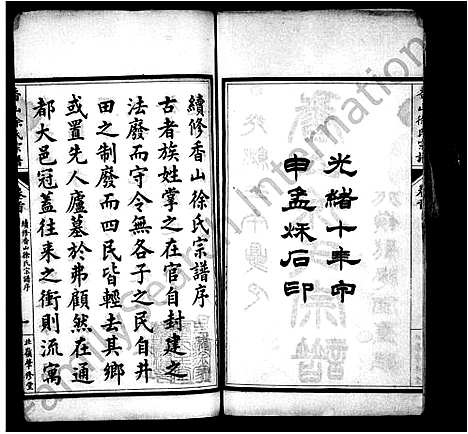 光緒十年甲
申孟秋石印
續修香山徐氏宗譜序
古者族姓掌之在官自封建之
法廢而守令無各子之民自井
田之制廢而四民皆輕去其鄉
或置先人廬墓於弗顧然在通
都大邑冠蓋往來之衝則流寓
香山徐氏宗譜
卷首
續修香山徐氏宗譜序
一
北嶺肇修堂
香山徐氏宗譜
卷首